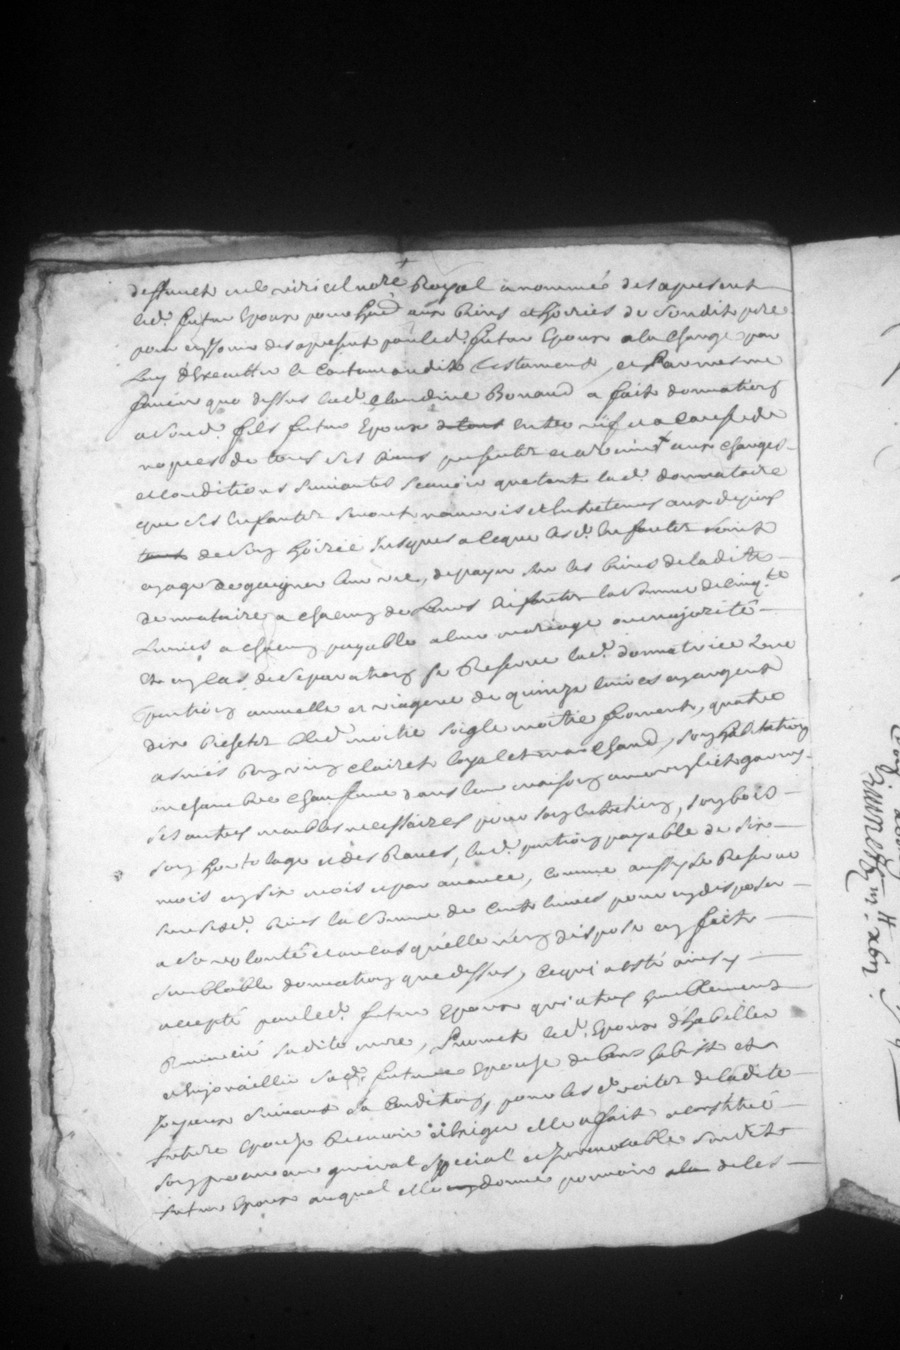 deffunct me viricel notre Royal a nommé des a present
led. futur Epoux pour heritier aux biens et hoiries de sondit pere
pour en jouir des apresent par led. futur Epoux a la charge par
luy d'executter le contenu audit testament, et par mesme
faveur que dessus lad. Claudine Bonand a fait donnation
a sond. fils futur Epoux de tous entre vif et a cause de
nopces de tous ses biens presents et avenir aux charges
et conditions suivantes scavoir que tant lad. donnataire
que ses enfants seront nourris et entretenus aux depens
de son hoirie jusques a ce que lesd. enfants soint
en age de gaigner leur vie, de payer sur les biens de ladite
donnataire a chacun de leurs enfants la somme de cinq.te
livres a chacun payable a leur mariage ou majorité
et en cas de separation se Reserve lad. donnatrice une
pention annuelle et viagere de quinze livres en argent
dix bichets bled moitie seigle moitie froment, quatre
asnées bon vin clairet loyal et marchand, son habitation
en chambre chauffure dans leur maison avec un lict garny
ses autres meubles necessaires pour son entretien, son bois
son hortolage et des Raves, lad. pention payable de six
mois en six mois et par avance, comme aussy se Reserve
sur sesd. biens la somme de cent livres pour en disposer
a sa volonté et au cas qu'elle n'en dispose en fait
semblable donnation que dessus, ce qui a esté ainsy
accepté par led. futur Epoux qui a tres humblement
Remercié sadite mere, Promet led. Epoux d'habiller
et enjouailler sad. future Epouse de bons habits et
joyaux suivant sa condition, pour les droits de ladite
future Epouse Recevoir et exiger elle a fait et constitué
son procureur general special et irrevocable sondit
futur Epoux auquel elle donne pouvoir de les